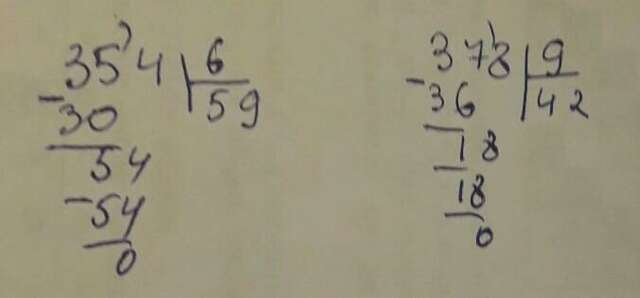 354 6
- 59
30
54
-54
0
378 9
- 42
36
18
18
0